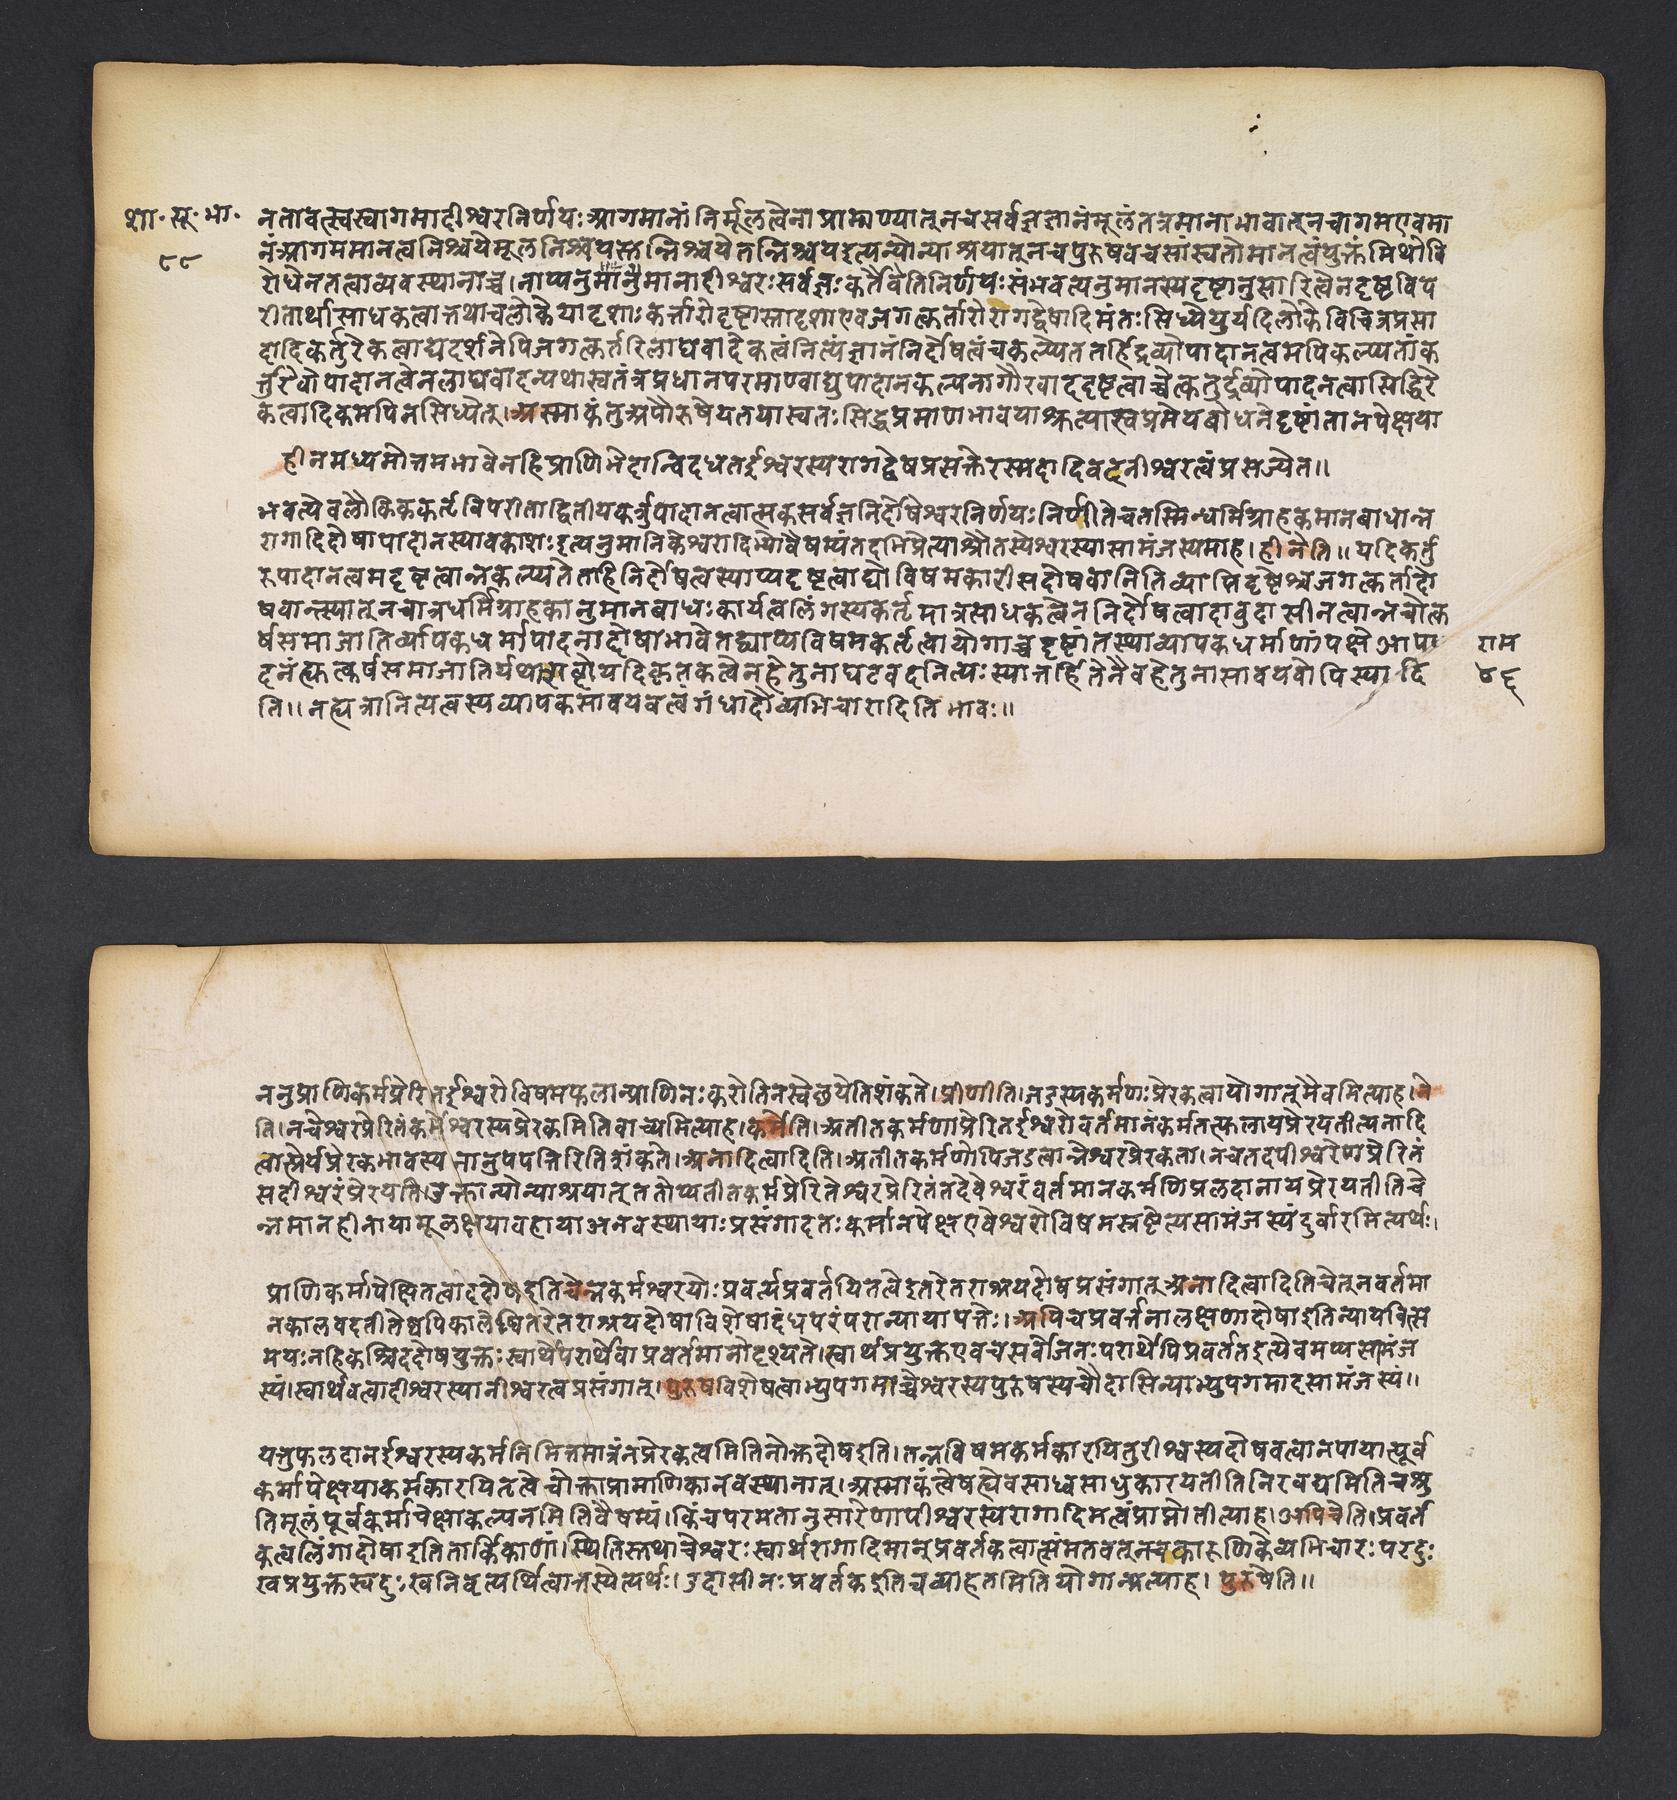 शा. सू. भा.
८८
न तावत्स्वस्वागमादीश्वरनिर्णयः आगमानां निर्मूलत्वेनाप्रामाण्यात् न च सर्वज्ञज्ञानं मूलं तत्र मानाभावात् न चागम एव मा
नं आगममानत्वनिश्चये मूलनिश्चयस्तन्निश्चये तन्निश्चय इत्यन्योन्याश्रयात् न च पुरुषवचसां स्वतो मानत्वं युक्तं मिथो वि
रोधेन तत्वाव्यवस्थानाच्च । नाप्यनुमानादीश्वरः सर्वज्ञः कर्तैवेति निर्णयः संभवत्यनुमानस्य दृष्टानुसारित्वेन दृष्टविप
रीतार्थासाधकत्वात्तथा च लोके यादृशाः कर्त्तारो दृष्टास्तादृशा एव जगत्कर्तारो रागद्वेषादिमंतः सिध्येयुर्यदि लोके विचित्रप्रसा
दादिकर्तुरेकत्वाद्यदर्शनेपि जगत्कर्तरि लाघवादेकत्वं नित्यं ज्ञानं निर्दोषत्वं च कल्प्येत तर्हि द्रव्योपादानत्वमपि कल्प्यतां क
र्त्तुरेवोपादानत्वेन लाघवादन्यथा स्वतंत्रप्रधानपरमाण्वाद्युपादानकल्पनागौरवाददृष्टत्वाच्चेत्कर्तुर्द्रव्योपादनत्वासिद्धिरे
कत्वादिकमपि न सिध्येत् । अस्माकं तु अपौरुषेयतया स्वतः सिद्धप्रमाणभावया श्रुत्या स्वप्रमेयबोधने दृष्टांतानपेक्षया
हीनमध्यमोत्तमभावेन हि प्राणिभेदान्विदधत ईश्वरस्य रागद्वेषप्रसक्तेरस्मदादिवदनीश्वरत्वं प्रसज्येत ॥
भवत्येव लौकिककर्तृविपरीताद्वितीयकर्त्रुपादानत्वात्सक सर्वज्ञनिर्दोषेश्वरनिर्णयः निर्णीते च तस्मिन्धर्मिग्राहकमानबाधान्न
रागादिदोषापादानस्यावकाशः इत्यनुमानिकेश्वरादिभ्यो वैषम्यं तदभिप्रेत्याश्रौतस्येश्वरस्यासामंजस्यमाह । हीनेति ॥ यदि कर्तु
रुपादानत्वमदृष्टत्वान्न कल्प्यते तर्हि निर्दोषत्वस्याप्यदृष्टत्वाद्यो विषमकारी स दोषवानिति व्याप्तिदृष्टेश्च जगत्कर्ता दो
षवान्स्यात् न चात्र धर्मिग्राहकानुमानबाधः कार्यत्वलिंगस्य कर्तृमात्रसाधकत्वेन निर्दोषत्वादावुदासीनत्वान्न चोत्क
र्षसमा जातिर्व्यापकधर्मापादनाद्दोषाभावे तद्व्याप्यविषमकर्तृत्वायोगाच्च दृष्टांतस्थाव्यापकधर्माणां पक्षे आपा
दनं ह्युत्कर्षसमा जातिर्यथा शब्दो यदि कृतकत्वेन हेतुना घटवदनित्यः स्यात्तर्हि तेनैव हेतुना सावयवोपि स्यादि
ति ॥ न ह्यत्रानित्यत्वस्य व्यापकं सावयवत्वं गंधादौ व्यभिचारादिति भावः ॥
राम
४६
ननु प्राणिकर्मप्रेरित ईश्वरो विषमफलान्प्राणिनः करोति न स्वेच्छयेति शंकते । प्राणीति । जडस्य कर्मणः प्रेरकत्वायोगात् मैवमित्याह । ने
ति । न चेश्वरप्रेरितं कर्मेश्वरस्य प्रेरकमिति वाच्यमित्याह । कर्मेति । अतीतकर्मणा प्रेरित ईश्वरो वर्तमानं कर्म तत्फलाय प्रेरयतीत्यनादि
त्वात्प्रेर्यप्रेरकभावस्य नानुपपत्तिरिति शंकते । अनादित्वादिति । अतीतकर्मणोपि जडत्वान्नेश्वरप्रेरकता । न च तदपीश्वरेण प्रेरितं
सदीश्वरं प्रेरयति । उक्तान्योन्याश्रयात् ततोप्यतीतकर्मप्रेरितेश्वरप्रेरितं तदेवेश्वरं वर्तमानकर्मणि प्रलदानाय प्रेरयतीति चे
न्न मानहीनाया मूलक्षयावहाया अनवस्थायाः प्रसंगादतः कर्मानपेक्ष एवेश्वरो विषमस्रष्टेत्यसामंजस्यं दुर्वारमित्यर्थः ।
प्राणिकर्मापेक्षितत्वाददोष इति चेन्न कर्मेश्वरयोः प्रवर्त्यप्रवर्तयितृत्वे इतरेतराश्रयदोषप्रसंगात् अनादित्वादिति चेत् न वर्तमा
नकालवदतीतेष्वपि कालेष्वितरेतराश्रयदोषाविशेषादंधपरंपरान्यायापत्तेः । अपि च प्रवर्त्तनालक्षणा दोषा इति न्यायवित्स
मयः न हि कश्चिददोषप्रयुक्तः स्वार्थे परार्थे वा प्रवर्तमानो दृश्यते । स्वार्थप्रयुक्त एव च सर्वो जनः परार्थेपि प्रवर्तत इत्येवमप्यसामंज
स्यं । स्वार्थवत्वादीश्वरस्यानीश्वरत्वप्रसंगात् । पुरुषविशेषत्वाभ्युपगमाच्चेश्वरस्य पुरुषस्य चौदासिन्याभ्युपगमादसामंजस्यं ॥
यत्तु फलदान ईश्वरस्य कर्मनिमित्तमात्रं न प्रेरकत्वमिति नोक्तदोष इति । तन्न विषमकर्मकारयितुरीश्वस्य दोषवत्वानपायात्पूर्व
कर्मापेक्षया कर्मकारयितृत्वे चोक्ताप्रामाणिकानवस्थानात् । अस्माकं त्वेष ह्येव साध्वसाधु कारयतीति निरवद्यमिति च श्रु
तिमूलं पूर्वकर्मापेक्षाकल्पनमिति वैषम्यं । किं च परमतानुसारेणापीश्वरस्य रागादिमत्वं प्राप्नोतीत्याह । अपि चेति । प्रवर्त
कत्वलिंगा दोषा इति तार्किकाणां स्थितिस्तथा चेश्वरः स्वार्थरागादिमान् प्रवर्तकत्वात्संमतवत् न च कारुणिके व्यभिचारः परदुः
खप्रयुक्तस्वदुःखनिवृत्यर्थित्वात्तस्येत्यर्थः । उदासीनः प्रवर्तक इति च व्याहतमिति योगान्प्रत्याह । पुरुषेति ॥